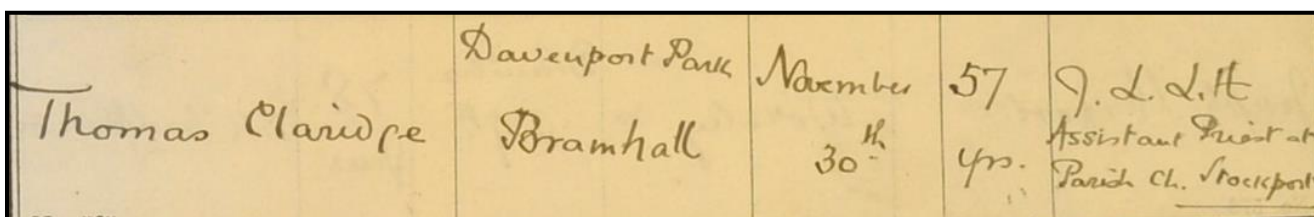 Thomas Claridge
Davenport Park
Bramhall
November
30th
57
yrs.
J. L. L. H
Assistant Priest at
Parish Ch. Stockport